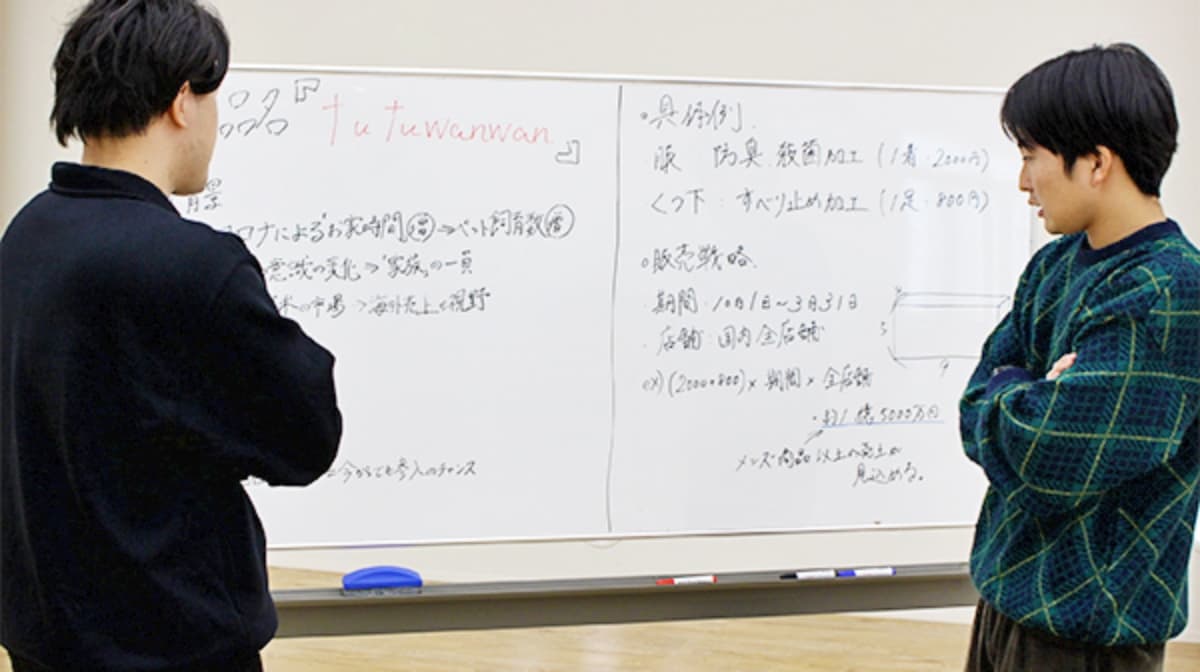 品『tutuwanwan』
背景
コロナによる"お家時間"増→ペット飼育数増
意識の変化⇒"家族"の一員
米の市場→海外売上も視野
今からでも参入のチャンス
◦具体例
服:防臭.殺菌加工(1着:2000円)
くつ下:すべり止め加工(1足:800円)
◦販売戦略
期間:10月1日〜3月31日
店舗:国内全店舗
ex)(2000+800)×期間×全店舗
約1億5000万円
メンズ商品以上の売上が
見込める。